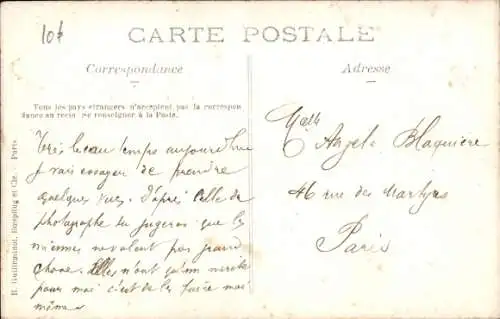 10f
CARTE POSTALE
Correspondance
Adresse
Tous les pays étrangers n'acceptent pas la correspon
dance au recto se renseigner à la Poste.
Très beau temps aujourd'hui
Je vais essayer de prendre
quelques vues. D'après celle de
photographe tu jugeras que les
miennes ne valent pas grand
chose. Elles n'ont qu'un mérite
pour moi c'est de les faire moi
même
Melle Angele Blaquière
46 rue des Martyrs
Paris
Paris